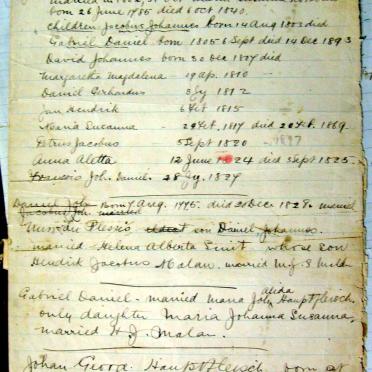 born 26 June 1785 died 6 Oct 1840.
Children Jacobus Johannes born 14 Aug 1803 died
Gabriel Daniel born 1805 6 Sept died 14 Dec 1893
David Johannes born 30 Dec 1807 died
Margaretha Magdalena 19 Ap. 1810
Daniel Gerhardus 3 Jy 1812
Jan Hendrik 6 Feb 1815
Maria Susanna - 24 Feb. 1817 died 20 Feb. 1869
Petrus Jacobus 5 Sept 1820
Anna Aletta 12 June 1824 died Sept 1825.
Francois Joh. Daniel 28 Jy. 1827
Daniel Joh Born 7 Aug. 1775. died 20 Dec 1827. married
Jacobus Joh. married
du Plessis eldest son Daniel Johannes.
married - Helena Alberta Smit, whose son
Hendrik Jacobus Malan. married M. J. S.
Gabriel Daniel - married Maria Joh. Aleida Hauptfleisch.
only daughter Maria Johanna Susanna.
married H. J. Malan.
Johan Georg. Hauptfleisch born at